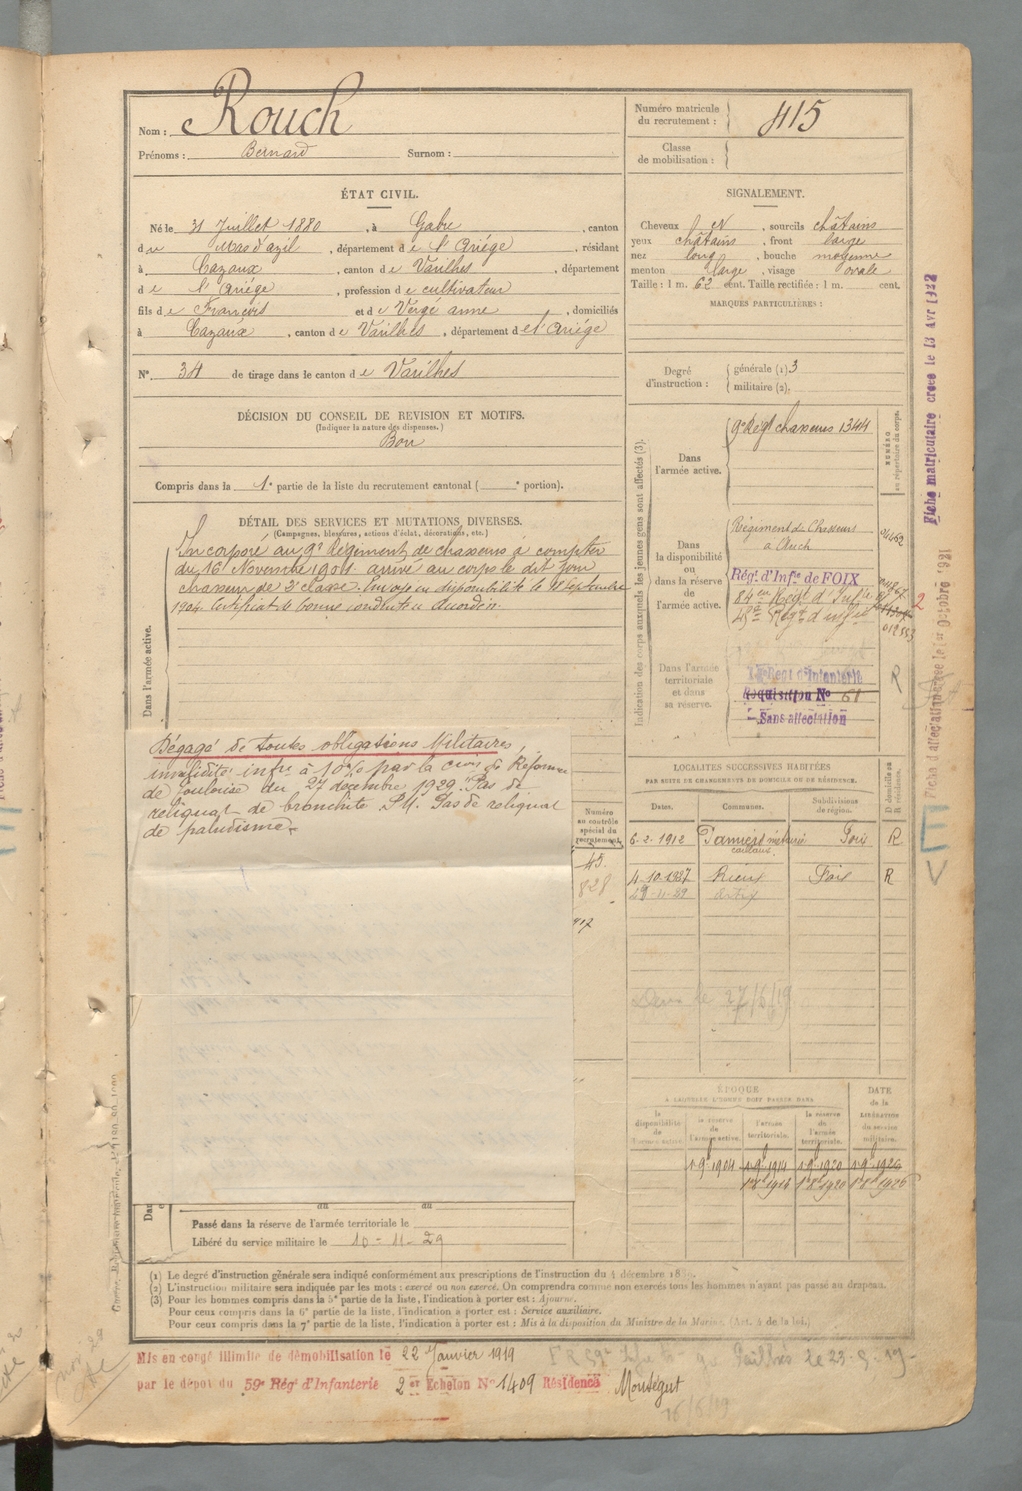 Nom : Rouch
Prénoms : Bernard Surnom :
Numéro matricule du recrutement : 415
Classe de mobilisation :
ÉTAT CIVIL.
Né le 31 Juillet 1880, à Gabre, canton
du Mas d'azil, département de l'Ariège, résidant
à Cazaux, canton de Varilhes, département
de l'Ariège, profession de cultivateur
fils de François et de Vergé anne, domiciliés
à Cazaux, canton de Varilhes, département de l'Ariège
N° 34 de tirage dans le canton de Varilhes
SIGNALEMENT.
Cheveux N, sourcils châtains
yeux châtains, front large
nez long, bouche moyenne
menton large, visage ovale
Taille : 1 m. 62 cent. Taille rectifiée : 1 m. cent.
MARQUES PARTICULIÈRES :
Degré d'instruction : générale (1) 3
militaire (2).
DÉCISION DU CONSEIL DE REVISION ET MOTIFS.
(Indiquer la nature des dispenses.)
Bon
Compris dans la 1e partie de la liste du recrutement cantonal ( e portion).
DÉTAIL DES SERVICES ET MUTATIONS DIVERSES.
(Campagnes, blessures, actions d'éclat, décorations, etc.)
Dans l'armée active.
Incorporé au 9e Régiment de chasseurs à compter
du 16 Novembre 1901 arrivé au corps le dit jour
chasseur de 2e classe. Envoyé en disponibilité le Septembre
1904. Certificat de bonne conduite accordé.
Dégagé de toutes obligations Militaires,
invalidité infre à 10% par la de Réforme
de toulouse du 27 décembre 1929. Pas de
reliquat de bronchite P.M. Pas de reliquat
de paludisme.
Indication des corps auxquels les jeunes gens sont affectés (3).
NUMÉRO au répertoire du corps.
Dans l'armée active.
9e Regt chasseurs 1344
Dans la disponibilité ou dans la réserve de l'armée active.
Régiment de Chasseurs
à Auch
Régt d'Infie de FOIX
Dans l'armée territoriale et dans sa réserve.
Regt d'Infanterie
Réquisition N° 61
Sans affectation
R
Fiche matriculaire créée le 13 Avr 1922
LOCALITÉS SUCCESSIVES HABITÉES
PAR SUITE DE CHANGEMENTS DE DOMICILE OU DE RÉSIDENCE.
Dates. Communes. Subdivisions de région. D domicile ou R résidence.
6-2-1912 Pamiers Foix R
4-10-1927 Rieux Foix R
Numéro au contrôle spécial du recrutement.
45
828
917
E
V
ÉPOQUE
À LAQUELLE L'HOMME DOIT PASSER DANS
la disponibilité de l'armée active.
la réserve de l'armée active.
l'armée territoriale.
la réserve de l'armée territoriale.
DATE de la LIBÉRATION du service militaire.
Passé dans la réserve de l'armée territoriale le
Libéré du service militaire le 10-11-29
(1) Le degré d'instruction générale sera indiqué conformément aux prescriptions de l'instruction du 4 décembre 1889.
(2) L'instruction militaire sera indiquée par les mots : exercé ou non exercé. On comprendra comme non exercés tous les hommes n'ayant pas passé au drapeau.
(3) Pour les hommes compris dans la 5e partie de la liste, l'indication à porter est : Ajourné.
Pour ceux compris dans la 6e partie de la liste, l'indication à porter est : Service auxiliaire.
Pour ceux compris dans la 7e partie de la liste, l'indication à porter est : Mis à la disposition du Ministre de la Marine. (Art. 4 de la loi.)
Mis en congé illimité de démobilisation le 22 Janvier 1919
par le dépôt du 59e Régt d'Infanterie 2e Echelon N° 1409 Résidence Montégut
16/6/19